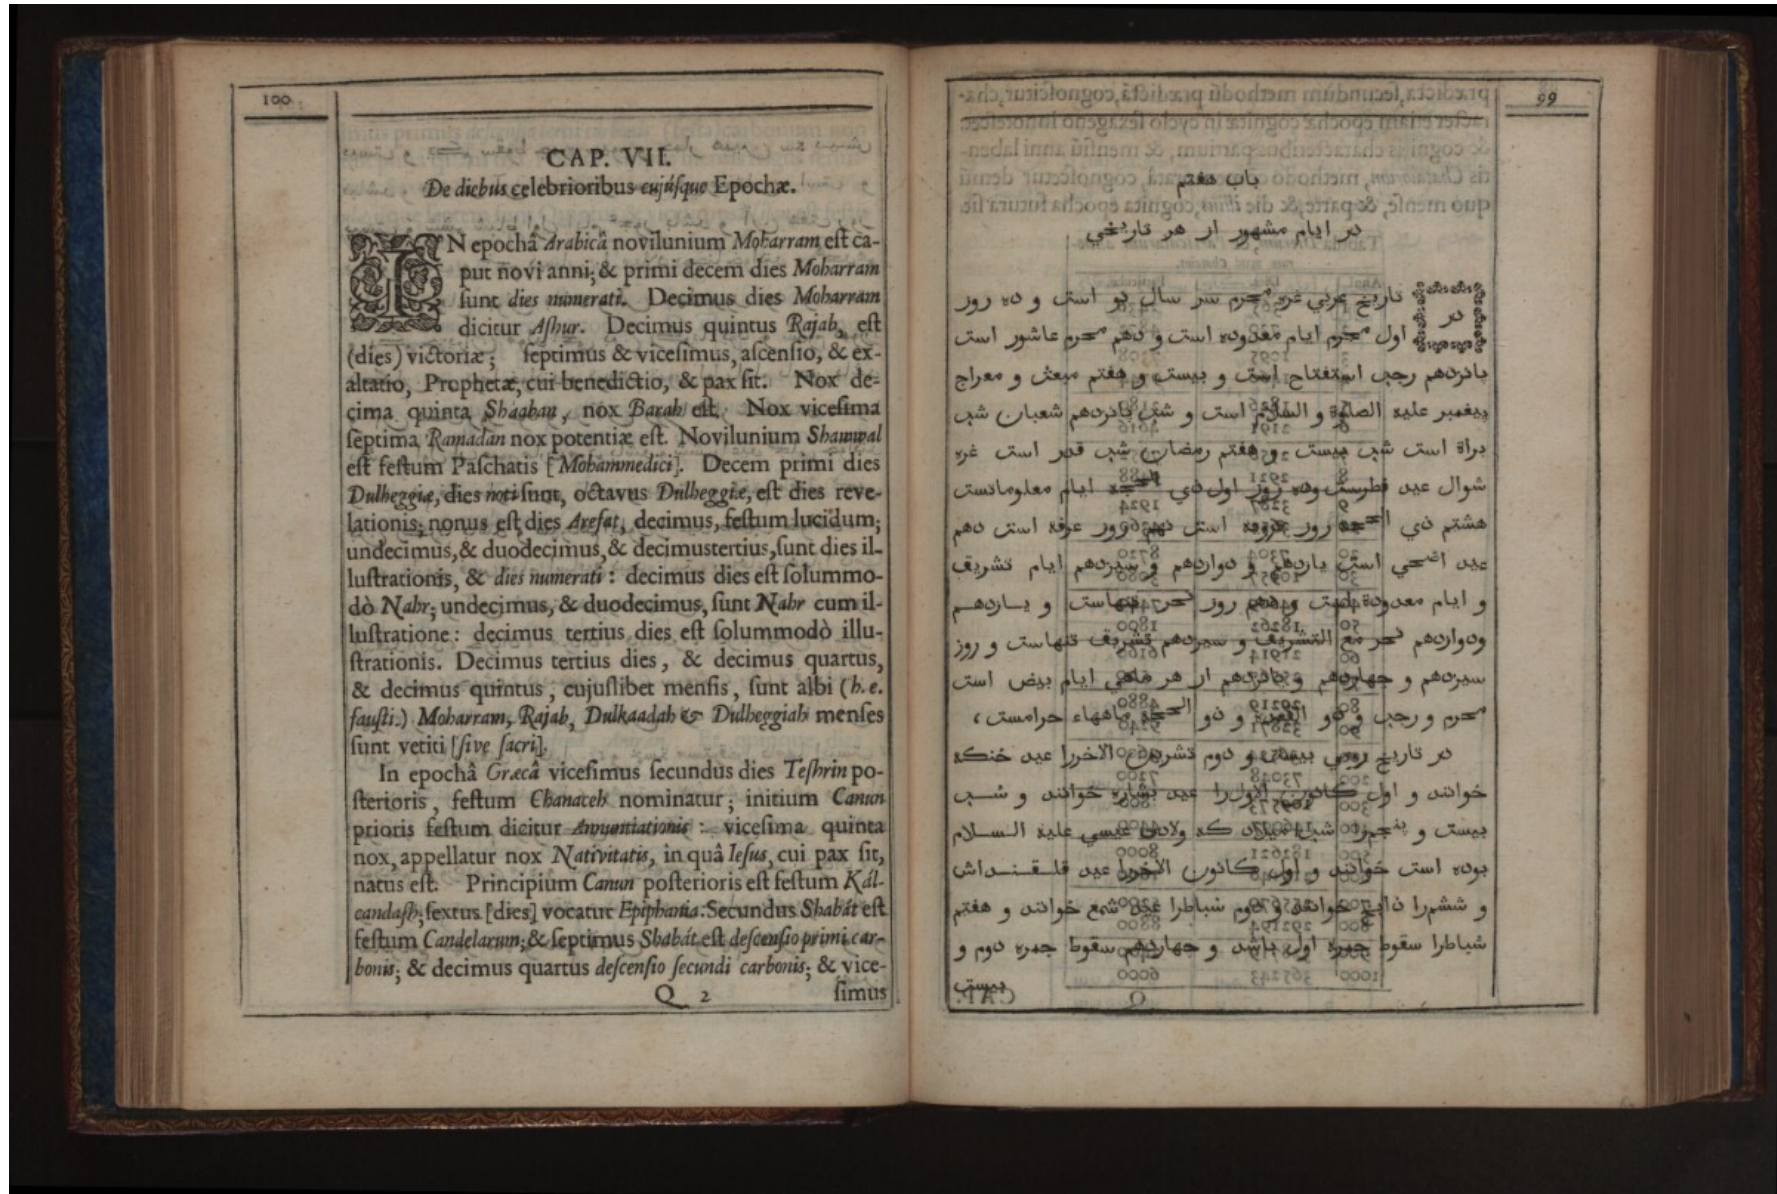 100
CAP. VII.
De diebus celebrioribus cujúsque Epochæ.
IN epochâ Arabicâ novilunium Moharram est ca-
put novi anni; & primi decem dies Moharram
sunt dies numerati. Decimus dies Moharram
dicitur Ashur. Decimus quintus Rajab, est
(dies) victoriæ; septimus & vicesimus, ascensio, & ex-
altatio, Prophetæ, cui benedictio, & pax sit. Nox de-
cima quinta Shaaban, nox Barah est. Nox vicesima
septima Ramadân nox potentiæ est. Novilunium Shawwal
est festum Paschatis [Mohammedici]. Decem primi dies
Dulheggiæ, dies noti sunt, octavus Dulheggiæ, est dies reve-
lationis; nonus est dies Arefat, decimus, festum lucidum;
undecimus, & duodecimus, & decimustertius, sunt dies il-
lustrationis, & dies numerati: decimus dies est solummo-
dò Nahr; undecimus, & duodecimus, sunt Nahr cum il-
lustratione: decimus tertius dies est solummodò illu-
strationis. Decimus tertius dies, & decimus quartus,
& decimus quintus, cujuslibet mensis, sunt albi (h. e.
fausti.) Moharram, Rajab, Dulkaadah & Dulheggiah menses
sunt vetiti [sive sacri].
In epochâ Græcâ vicesimus secundus dies Teshrin po-
sterioris, festum Chanaceh nominatur; initium Canun
prioris festum dicitur Annuntiationis: vicesima quinta
nox, appellatur nox Nativitatis, in quâ Iesus, cui pax sit,
natus est. Principium Canun posterioris est festum Kál-
candash; sextus [dies] vocatur Epiphania: Secundus Shabát est
festum Candelarum; & septimus Shabát est descensio primi car-
bonis; & decimus quartus descensio secundi carbonis; & vice-
Q 2 simus
99
باب هفتم
در ايام مشهور از هر تاريخي
در تاريخ عربي غره محرم سر سال نو است و ده روز
اول محرم ايام معدوده است و دهم محرم عاشور است
پانزدهم رجب استفتاح است و بيست و هفتم مبعث و معراج
پيغمبر عليه الصلوة و السلام است و شب پانزدهم شعبان شب
براة است شب بيست و هفتم رمضان شب قدر است غره
شوال عيد فطرست وده روز اول ذي الحجه ايام معلوماتست
هشتم ذي الحجه روز ترويه است نهم روز عرفه است دهم
عيد اضحي است يازدهم و دوازدهم و سيزدهم ايام تشريف
و ايام معدوده است و دهم روز نحر تنهاست و يازدهم
ودوازدهم نحر مع التشريف و سيزدهم تشريف تنهاست و روز
سيزدهم و چهاردهم و پانزدهم از هر ماهي ايام بيض است
محرم و رجب و ذو القعده و ذو الحجه ماههاء حرامست،
در تاريخ رومي بيست و دوم تشرين الاخررا عيد خنكه
خوانند و اول كانون الاولرا عيد بشاره خوانند و شب
بيست و پنجمرا شب ميلاد كه ولادت عيسي عليه السلام
بوده است خوانند و اول كانون الاخررا عيد قلقنداش
و ششمرا ذابح خوانند و دوم شباطرا عيد شمع خوانند و هفتم
شباطرا سقوط جمره اول باشد و چهاردهم سقوط جمره دوم و
بيست